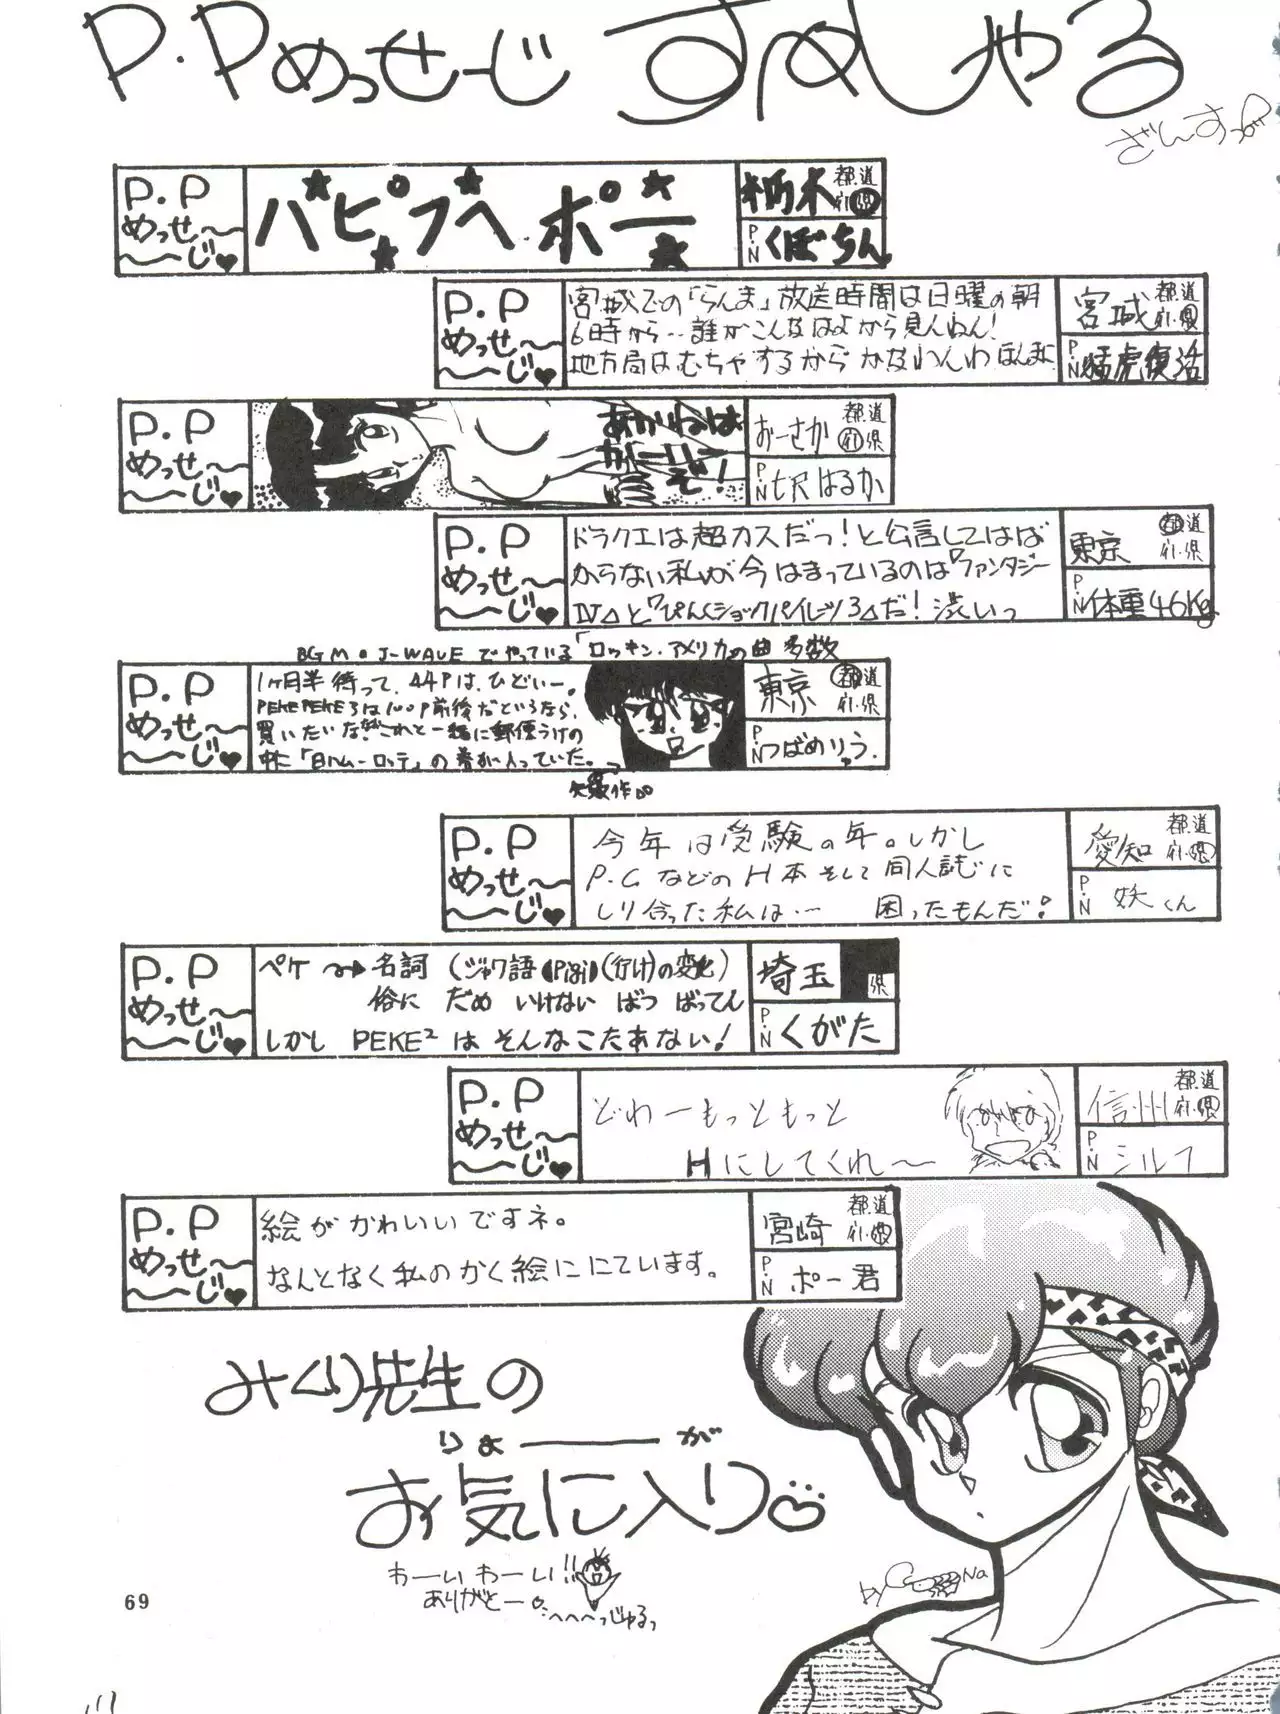 P.Pめっせーじ すぺしゃる
ざんすっ
P.P
めっせ〜
〜じ♥
パピプペポー
栃木
都道
府・県
P.N
くぼちん
P.P
めっせ〜
〜じ♥
宮城での「らんま」放送時間は日曜の朝
6時から‥誰がこんなはよから見んねん!
地方局はむちゃするからかなわんわほんま
宮城
都道
府・県
P.N
猛虎復活
P.P
めっせ〜
〜じ♥
あかねは
かーいー
ぞ!
おーさか
都道
府・県
P.N
七沢はるか
P.P
めっせ〜
〜じ♥
ドラクエは超カスだっ!と公言してはば
からない私が今はまっているのは『ファンタジー
Ⅳ』と『ぴんくショックパイレーツ3』だ!渋いっ
東京
都道
府・県
P.N
体重46Kg
BGM・J-WAVEでやっている「ロッキン・アメリカの曲多数
P.P
めっせ〜
〜じ♥
1ヶ月半待って、44Pは、ひどいー。
PEKEPEKE3は100P前後だというなら、
買いたいなぁ。これと一緒に郵便うけの
中に「日ハム-ロッテ」の券が入っていた。
東京
都道
府・県
P.N
つばめりう
P.P
めっせ〜
〜じ♥
今年は受験の年。しかし
P.CなどのH本そして同人誌に
しり合った私は‥〜 困ったもんだ!
愛知
都道
府・県
P.N
妖くん
P.P
めっせ〜
〜じ♥
ペケ 〜→ 名詞 (ジャワ語 Pigi (行け)の変化)
俗に だめ いけない ばつ ばってん
しかし PEKE²はそんなこたあない!
埼玉
県
P.N
くがた
P.P
めっせ〜
〜じ♥
どわーもっともっと
Hにしてくれ〜
信州
都道
府・県
P.N
シルフ
P.P
めっせ〜
〜じ♥
絵がかわいいですネ。
なんとなく私のかく絵ににています。
宮崎
都道
府・県
P.N
ポー君
みくり先生の
りょーが
お気に入り♡
わーいわーい!!
ありがとー
へへへ〜っじゅるっ
by
Na
69